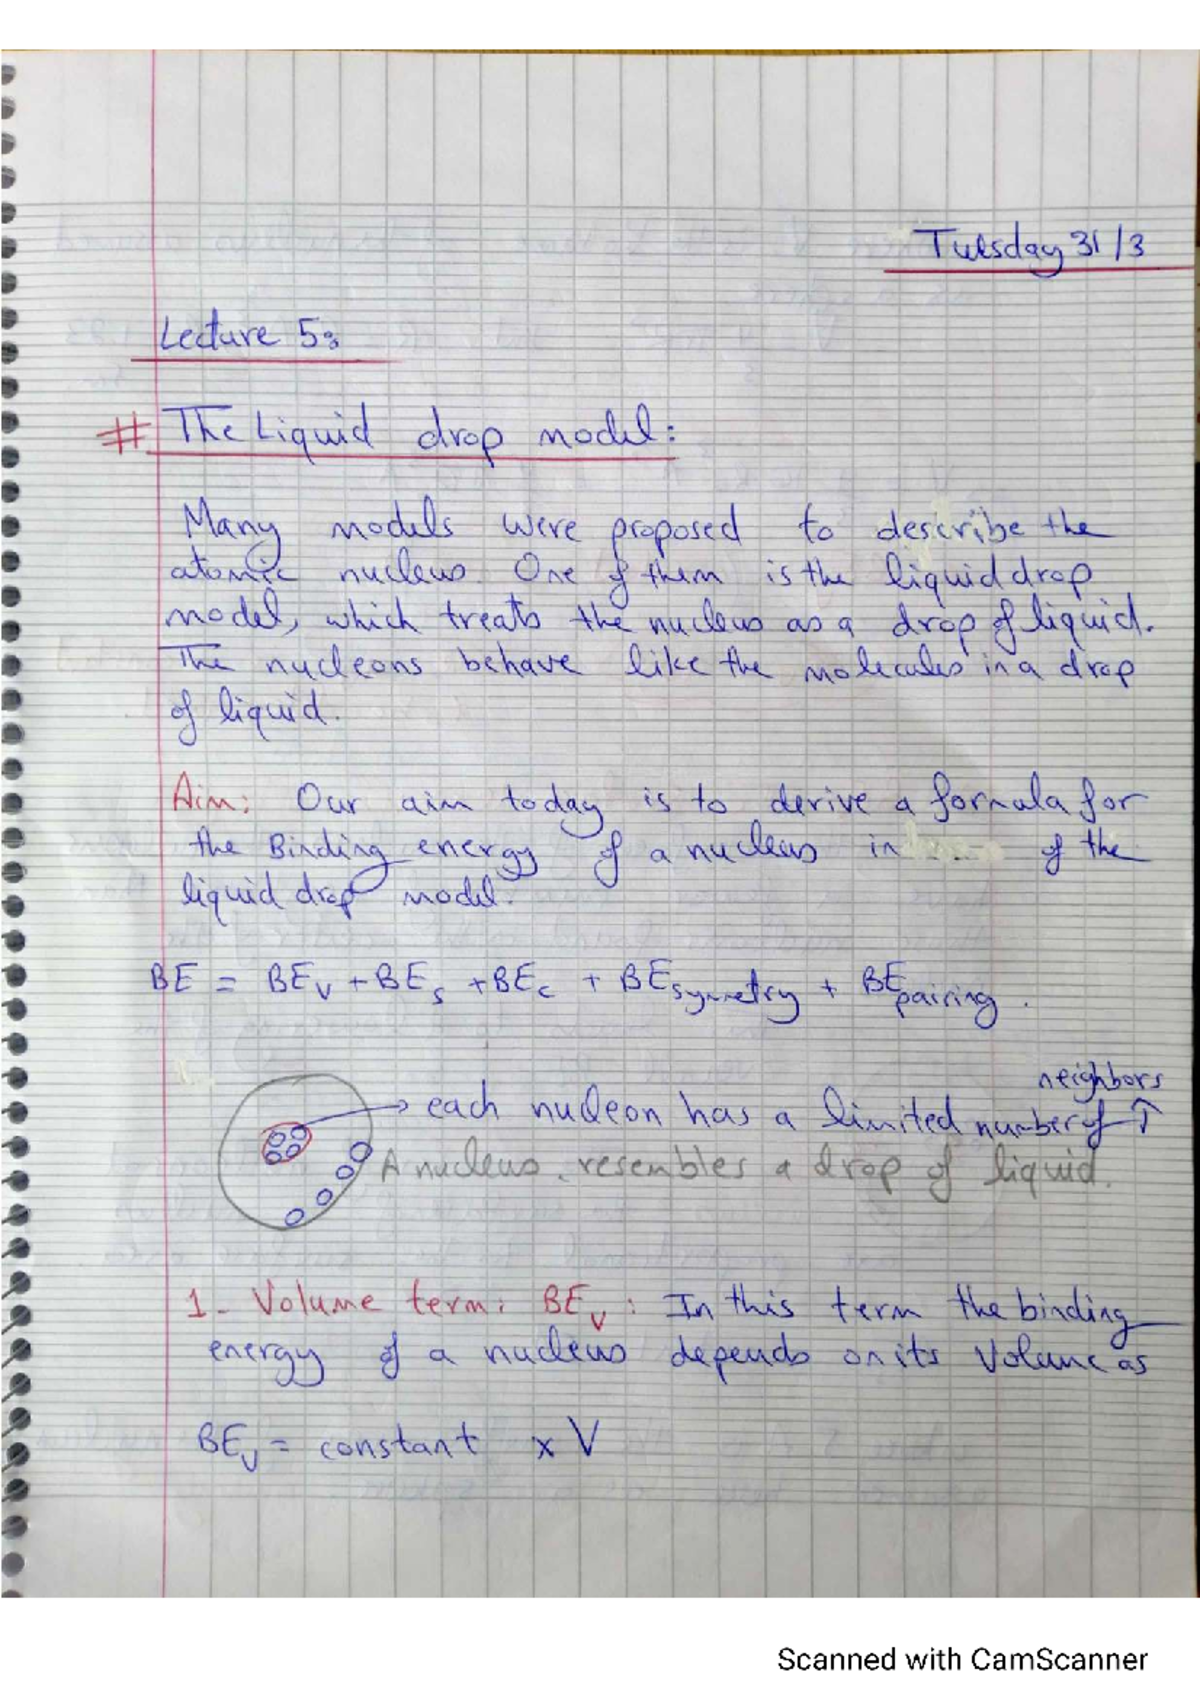 Tuesday 31/3
Lecture 5:
# The Liquid drop model:
Many models were proposed to describe the
atomic nucleus. One of them is the liquid drop
model, which treats the nucleus as a drop of liquid.
The nucleons behave like the molecules in a drop
of liquid.
Aim: Our aim today is to derive a formula for
the Binding energy of a nucleus in of the
liquid drop model.
BE = BE_V + BE_s + BE_c + BE_symmetry + BE_pairing .
neighbors
→ each nucleon has a limited number of ↑
A nucleus resembles a drop of liquid.
1 - Volume term: BE_V : In this term the binding
energy of a nucleus depends on its Volume as
BE_V = constant x V
Scanned with CamScanner